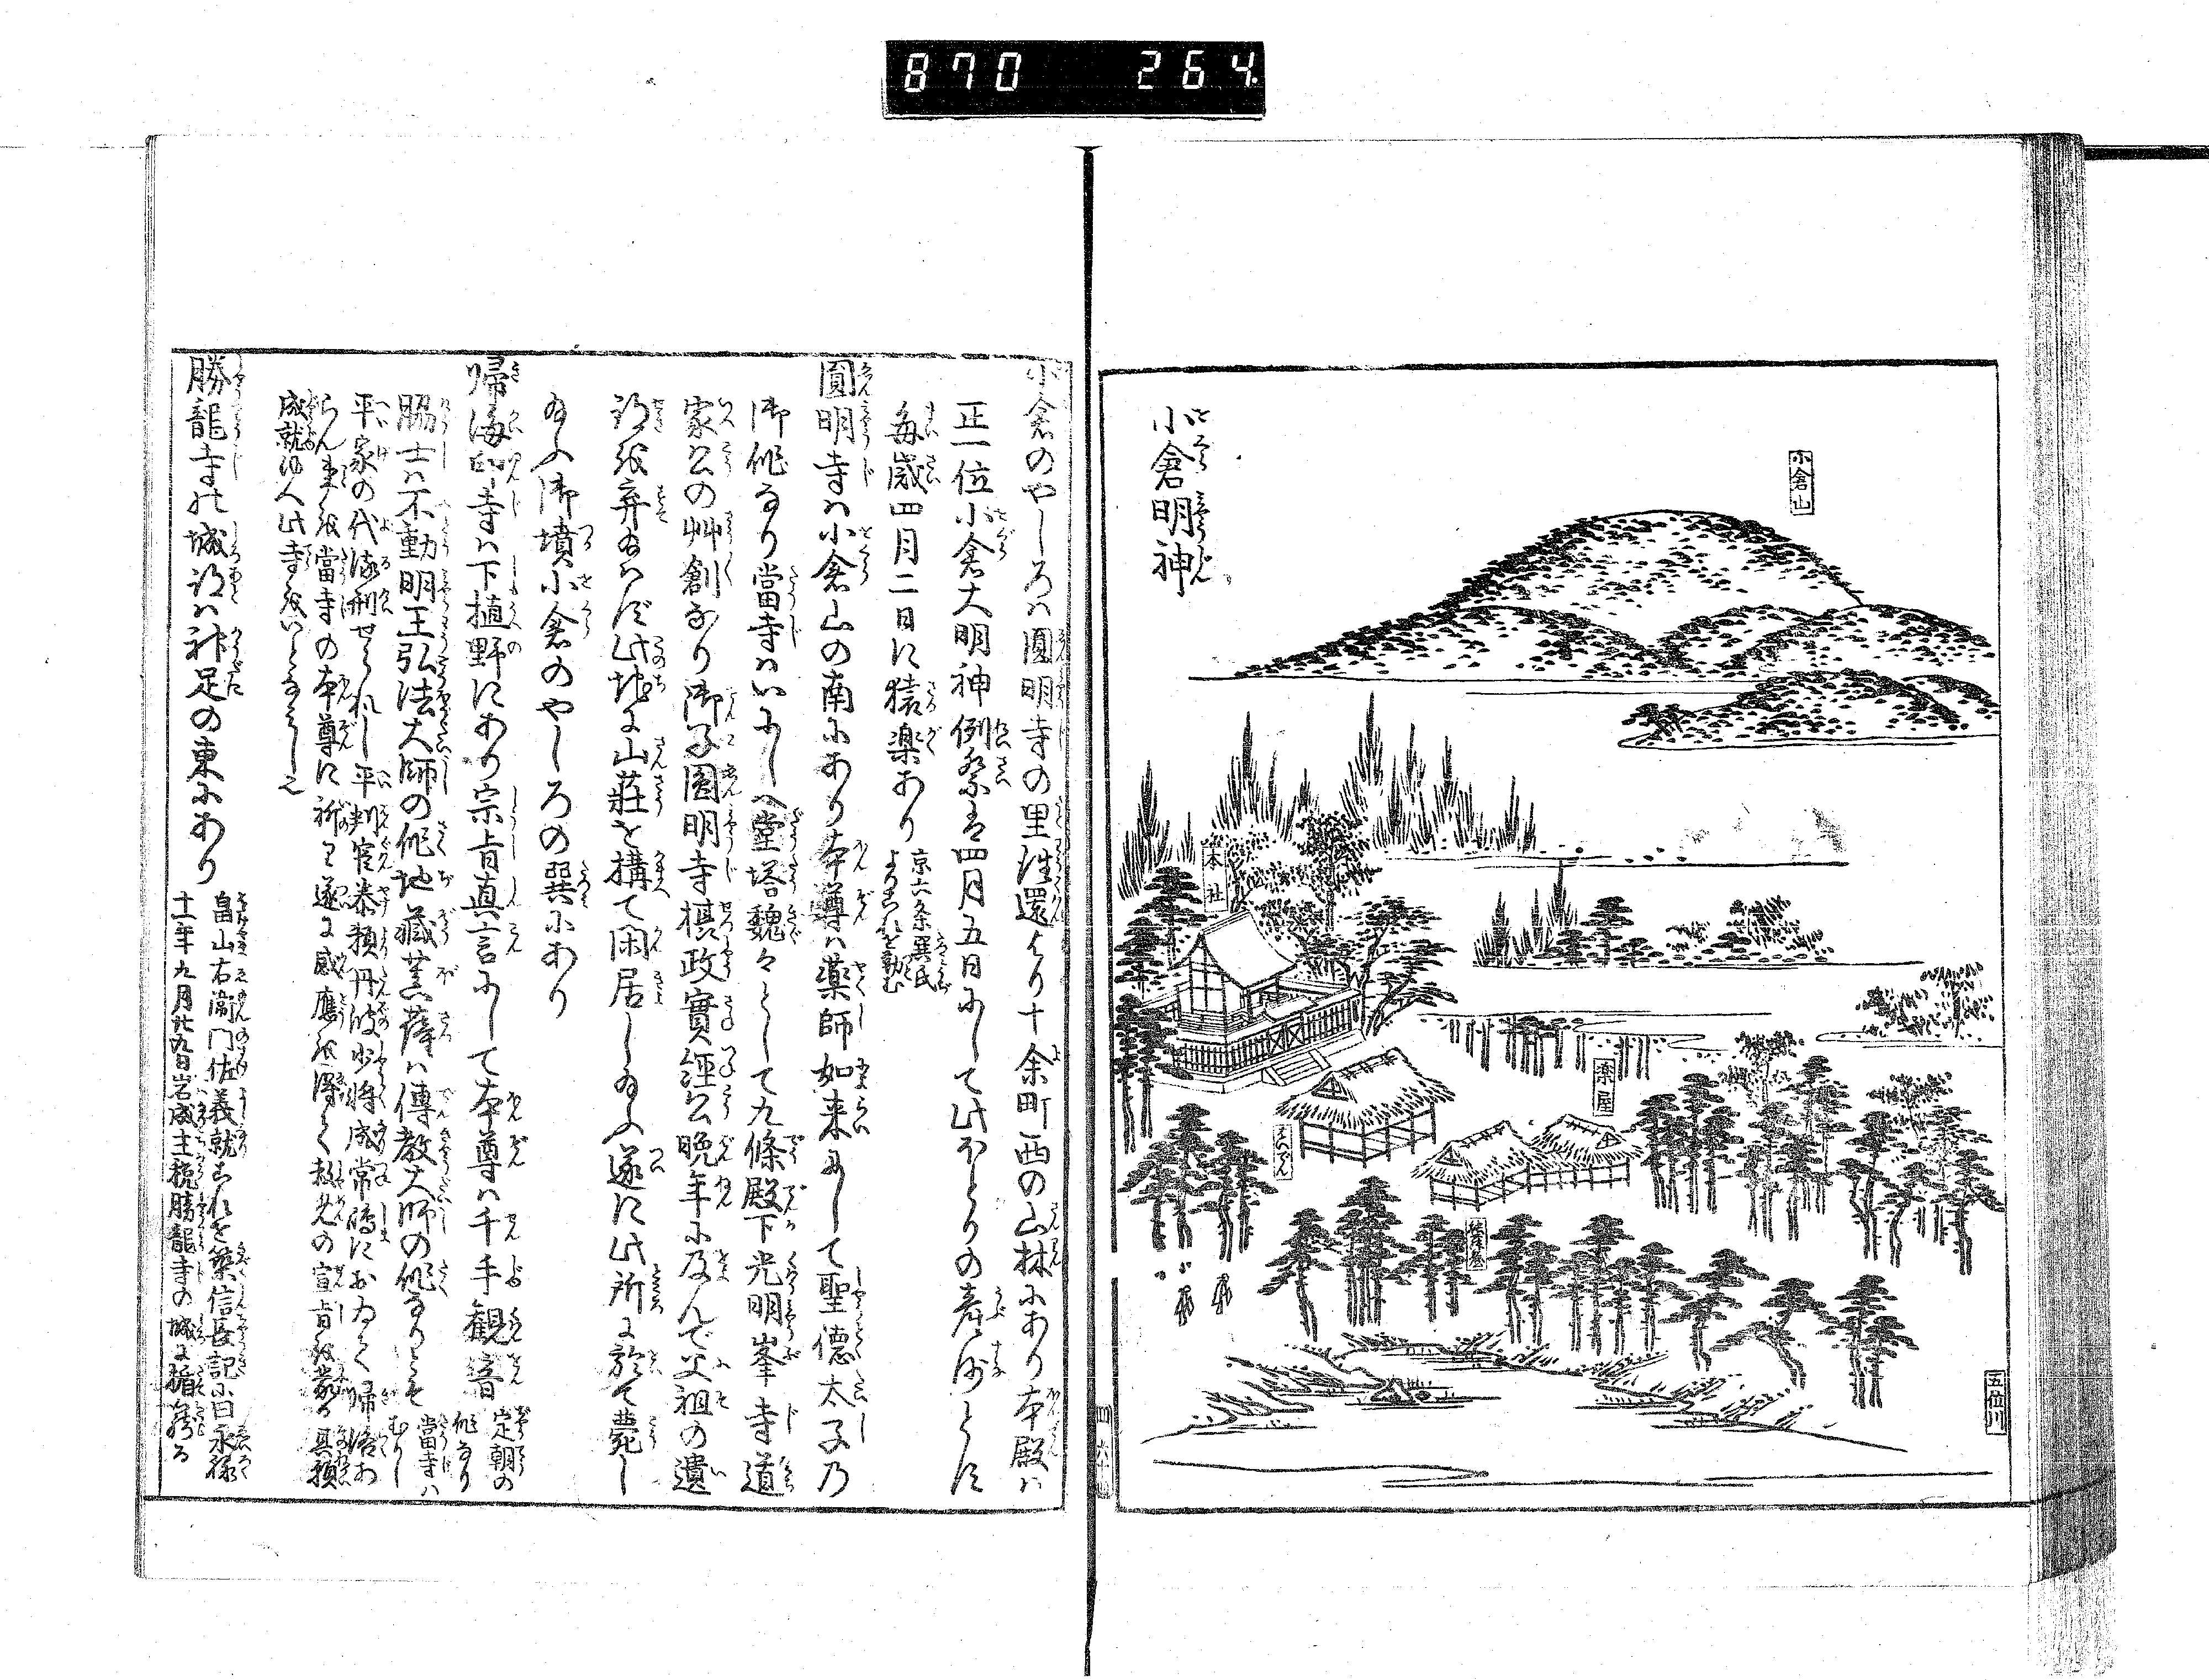 870 264
小倉明神
小倉山
本社
楽屋
はいでん
五位川
小倉のやしろハ圓明寺の里往還より十余町西の山林にあり本殿ハ
正一位小倉大明神例祭は四月五日にして此ほとりの産沙とす
毎歳四月二日に猿楽あり
京六条巽氏
よりこれを勤む
圓明寺ハ小倉山の南にあり本尊ハ薬師如来にして聖徳太子乃
御作なり當寺ハいにしへ堂塔魏々として九條殿下光明峯寺道
家公の艸創なり御子圓明寺摂政實經公晩年に及んで父祖の遺
跡を弃給ハず此地に山荘を構て閑居し給ふ遂に此所に於て薨し
給ふ御墳小倉のやしろの巽にあり
帰海印寺ハ下植野にあり宗旨真言にして本尊ハ千手観音
定朝の
作なり
脇士ハ不動明王弘法大師の作地蔵菩薩ハ傳教大師の作なりとぞ
當寺ハ
むかし
平家の代流刑せられし平判官康頼丹波少将成常嶋におゐて帰洛あ
らん事を當寺の本尊に祈り遂に感應を得て赦免の宣旨を蒙る其願
成就ゆへ此寺をいとなみしと也
勝龍寺の城跡ハ神足の東にあり
畠山右衛門佐義就これを築信長記に曰永禄
十一年九月廿九日岩成主税勝龍寺の城に籠る